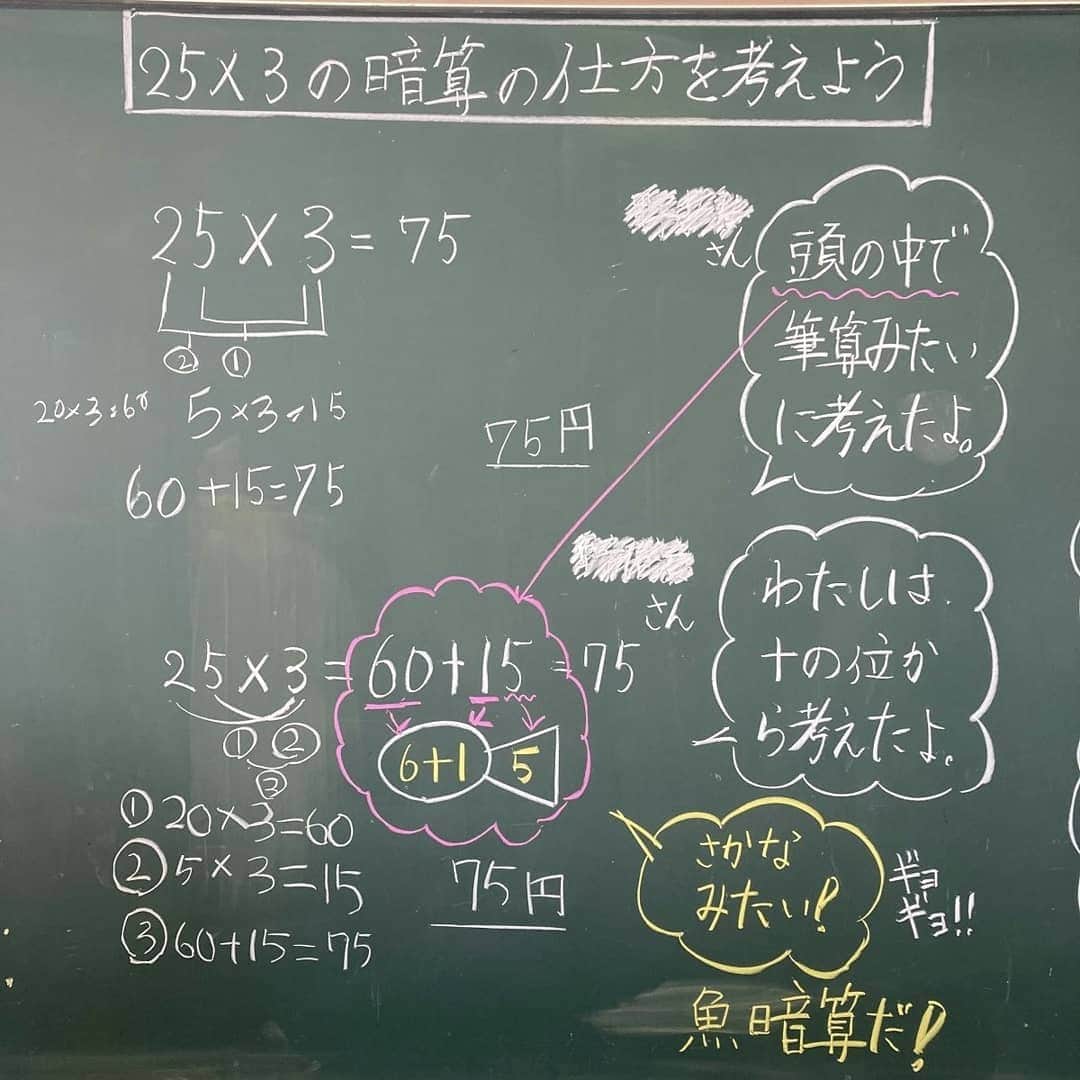 25×3の暗算の仕方を考えよう
25×3=75
② ①
20×3=60 5×3=15
60+15=75
75円
さん
頭の中で
筆算みたい
に考えたよ。
さん
わたしは
十の位か
ら考えたよ。
25×3=60+15=75
① ②
③
6+1 5
①20×3=60
②5×3=15
③60+15=75
75円
さかな
みたい!
ギョ
ギョ!!
魚暗算だ!